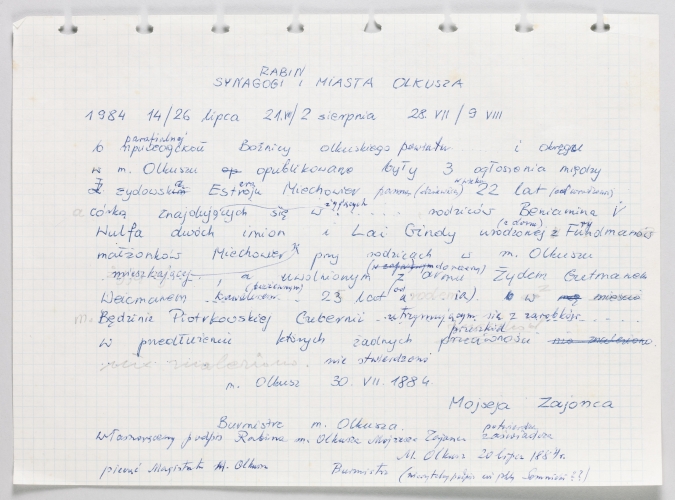 RABIN
SYNAGOGI i MIASTA OLKUSZA
1984 14/26 lipca 21.VII/2 sierpnia 28.VII/9 VIII
parafialnej
b Bożnicy olkuskiego powiatu . . . i okręgu
w m. Olkuszu op opublikowane były 3 ogłoszenia między
Ż żydowską Esterą Miechower panną (dziewicą) w wieku 22 lat
a córką znajdujących się w żyjących . . . . rodziców Beniamina V
Wulfa dwóch imion i Lai Gindy urodzonej z (z domu) Fuhdmanów
małżonków Miechower przy rodzicach w m. Olkuszu
mieszkającej . . , a uwolnionym z armii Żydem Gutmanem
Wacmanem kawalerem 23 lat (od urodzenia). w mieście
m. Będzinie Piotrkowskiej Gubernii utrzymującym się z zarobków . . . .
w przedłużeniu których żadnych przeszkód przeciwności nie znaleziono.
nie stwierdzono
m. Olkusz 30. VII. 1884.
Mojseja Zajonca
Burmistrz m. Olkusza.
własnoręczny podpis Rabina m. Olkusza Mojżesza Zajonca potwierdza zaświadcza
M. Olkusz 20 lipca 1884 r.
pieczęć Magistratu M. Olkusz Burmistrz (nieczytelny podpis